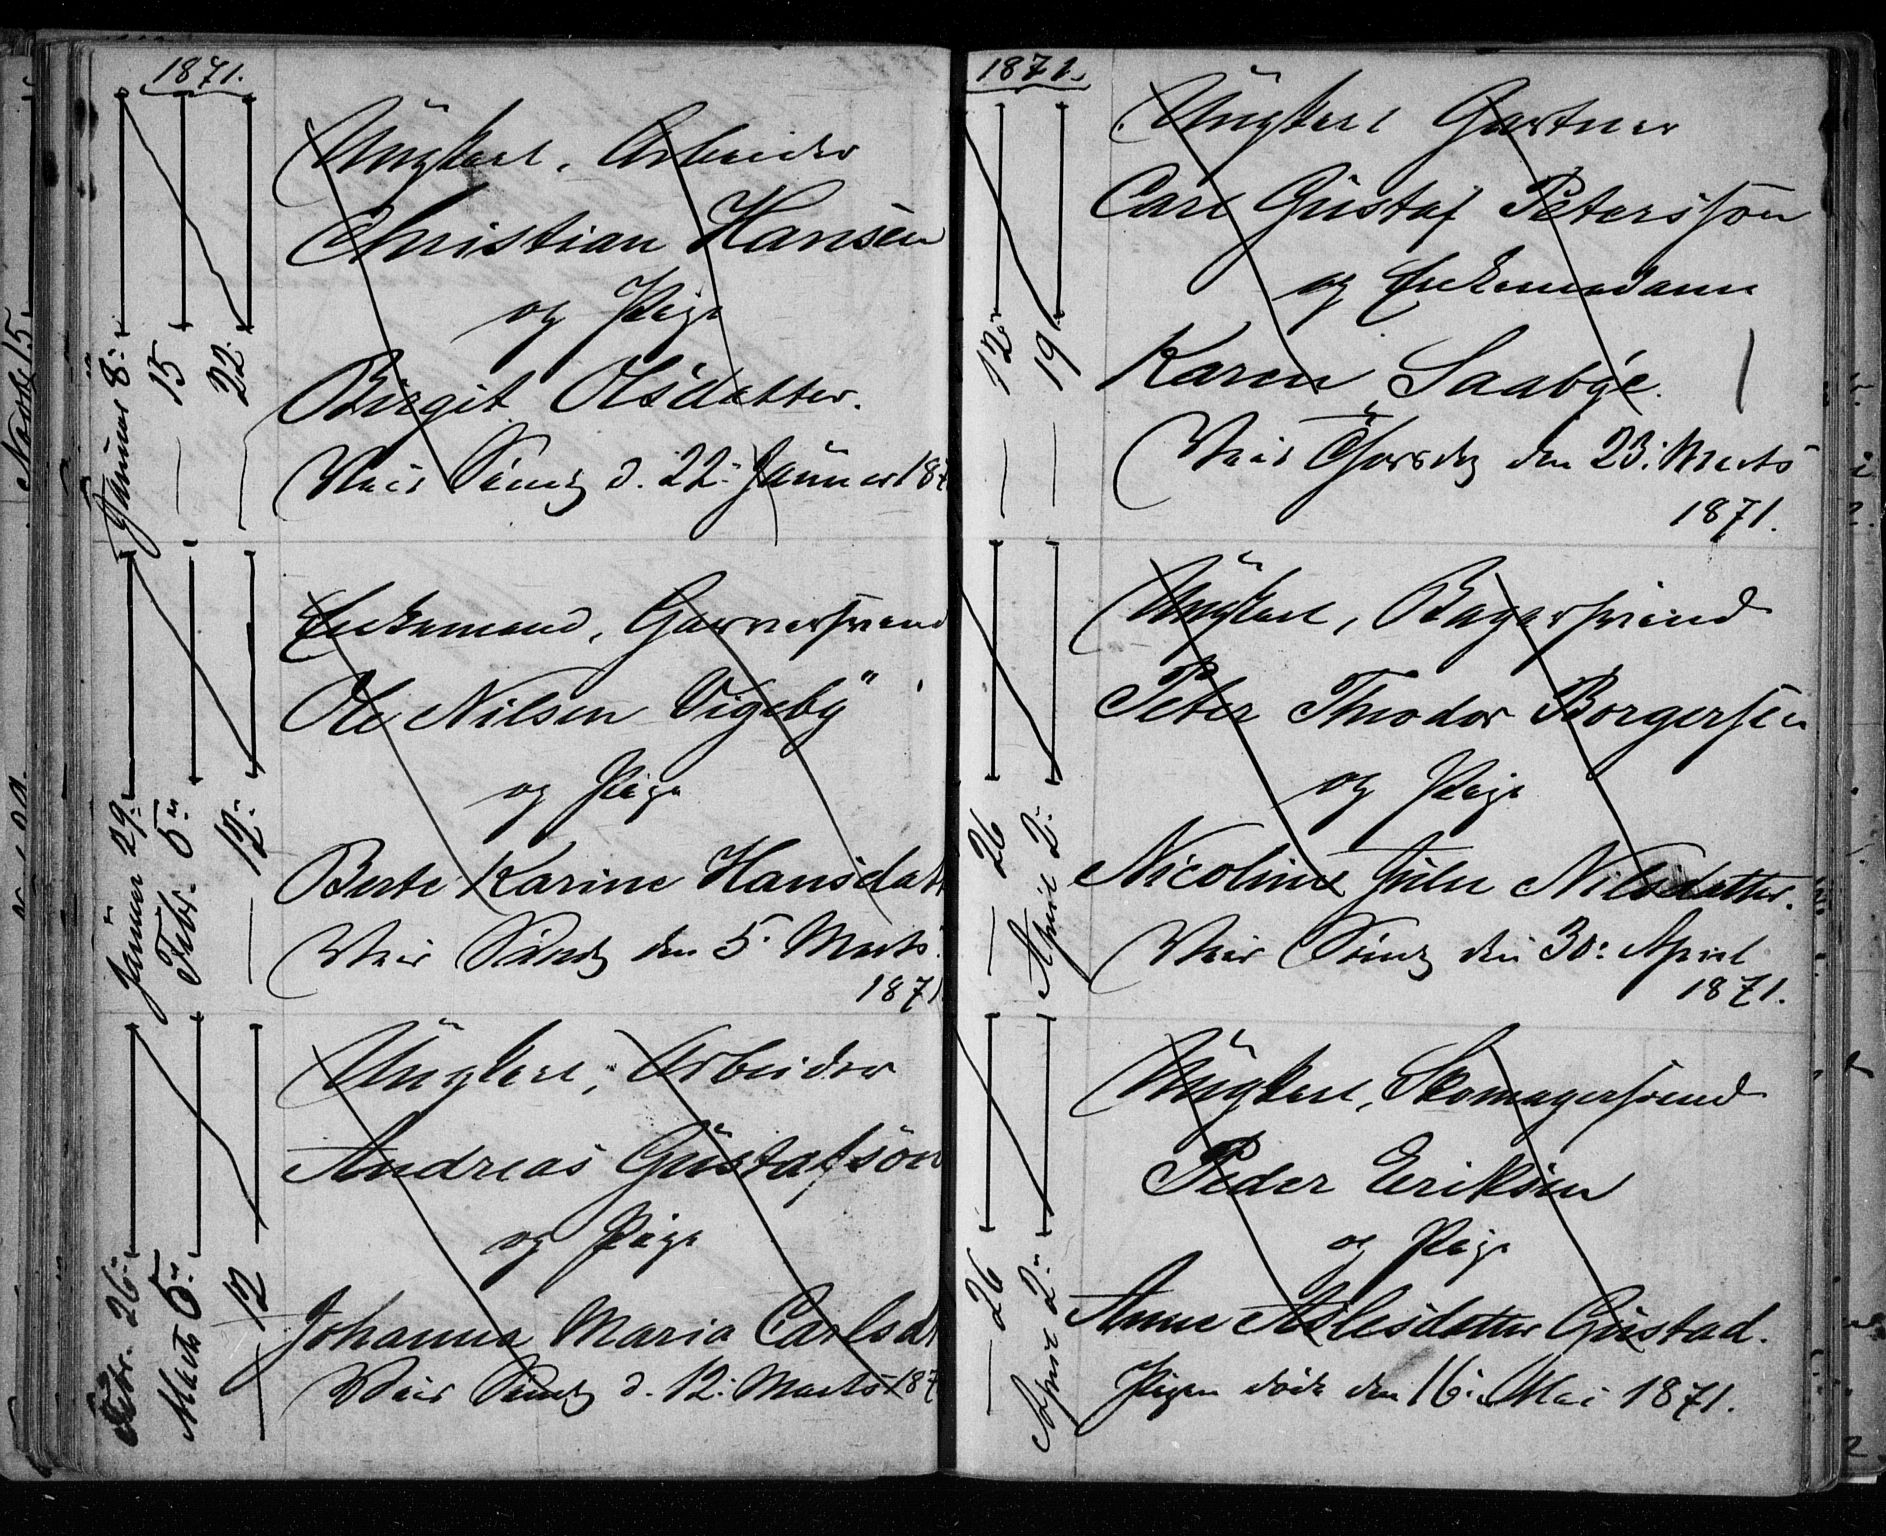 1871.
Januar 8.
15
22.
Ungkarl, Arbeider
Christian Hansen
og Pige
Birgit Olsdatter.
Viet Sönd. d. 22. Januar 187
Januar 29.
Febr. 5.
12.
Enkemand, Garversvend
Ole Nilsen Vigeby
og Pige
Berte Karine Hansdatt
Viet Sönd. den 5. Marts
1871
Febr. 26.
Marts 5.
12
Ungkarl, Arbeider
Andreas Gustafsön
og Pige
Johanna Maria Carlsd
Viet Sönd. d. 12. Marts 187
1871.
12
19
Ungkarl Gartner
Carl Gustaf Petersson
og Enkemadam
Karen Saabye.
Viet Torsdg den 23. Marts
1871.
26
April 2.
Ungkarl, Bagersvend
Peter Theodor Borgersen
og Pige
Nicoline Julie Nilsdatter.
Viet Sönd. den 30. April
1871.
26
April 2.
Ungkarl, Skomagersvend
Peder Eriksen
og Pige
Anne Aslesdatter Gustad.
Pigen döde den 16. Mai 1871.